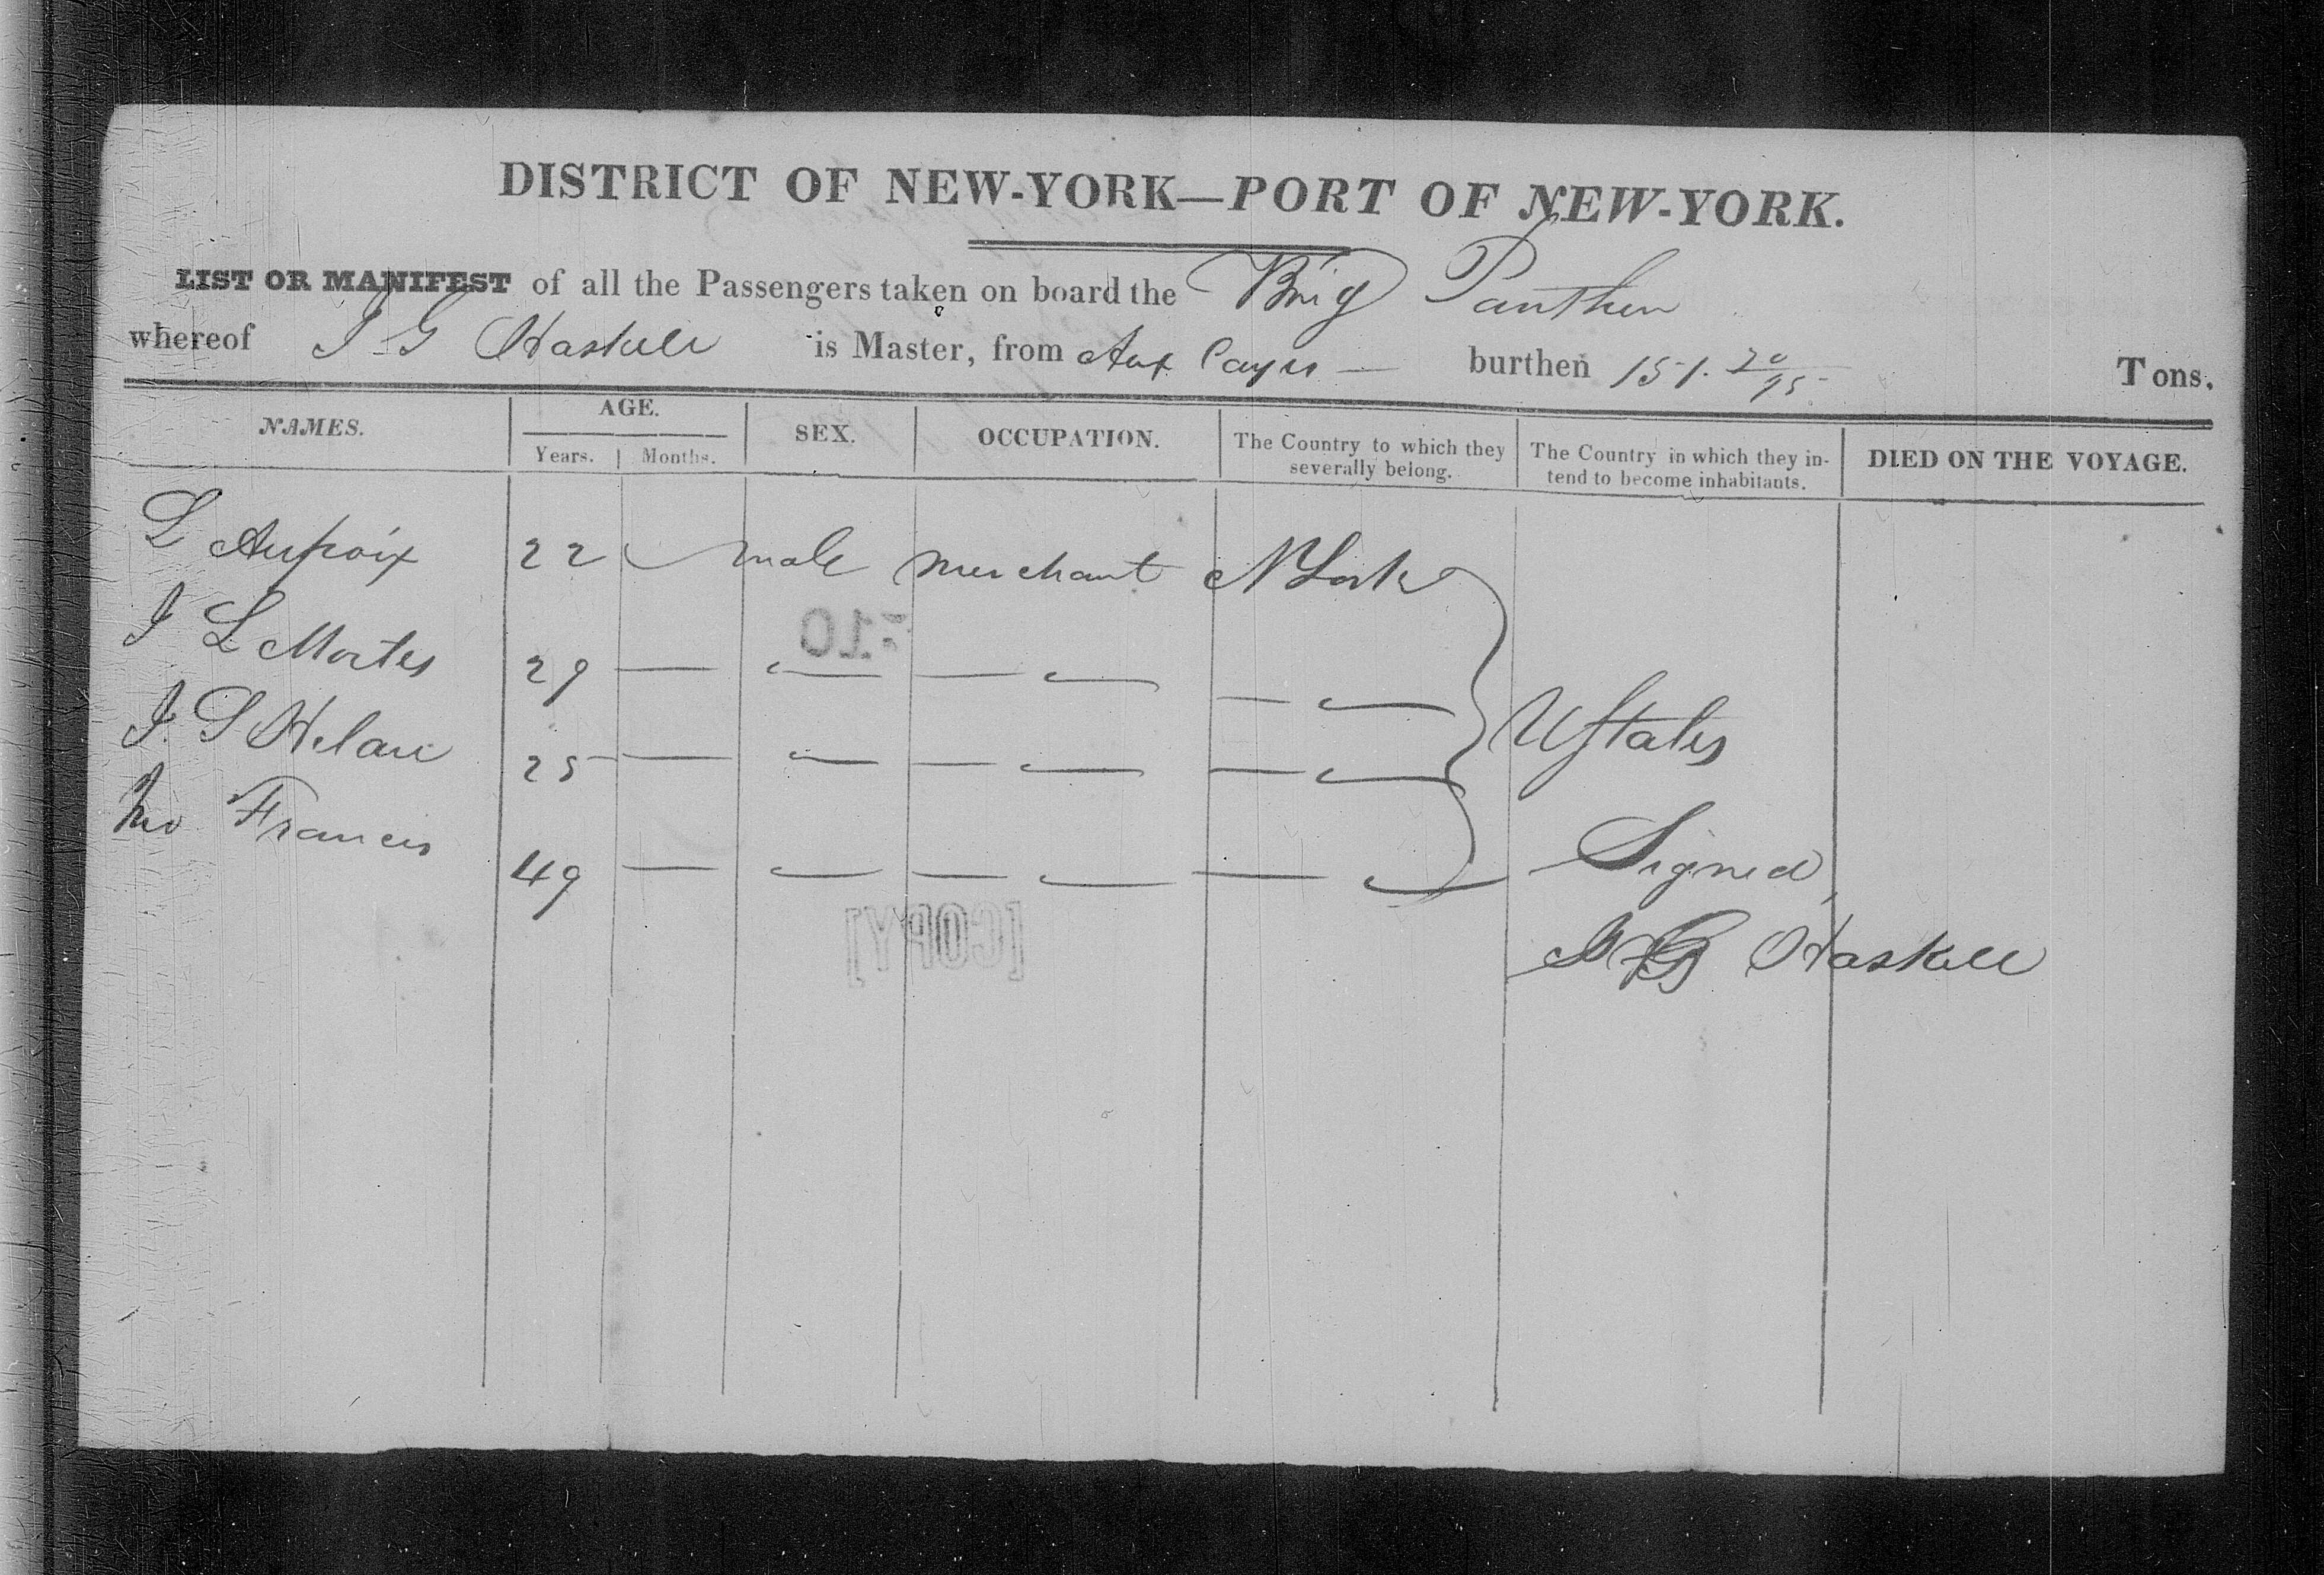 DISTRICT OF NEW-YORK—PORT OF NEW-YORK.
LIST OR MANIFEST of all the Passengers taken on board the Brig Panther
whereof J G Haskell is Master, from Aux Cayes — burthen 151. 20/95 Tons.
NAMES. AGE. SEX. OCCUPATION. The Country to which they severally belong. The Country in which they intend to become inhabitants. DIED ON THE VOYAGE.
Years. Months.
L Aupoix 22 male merchant N York
J L 29 — — — — — —
J. S 25 — — — — — —
Francis 49 — — — — — —
UStates
Signed
J G Haskell
[COPY]